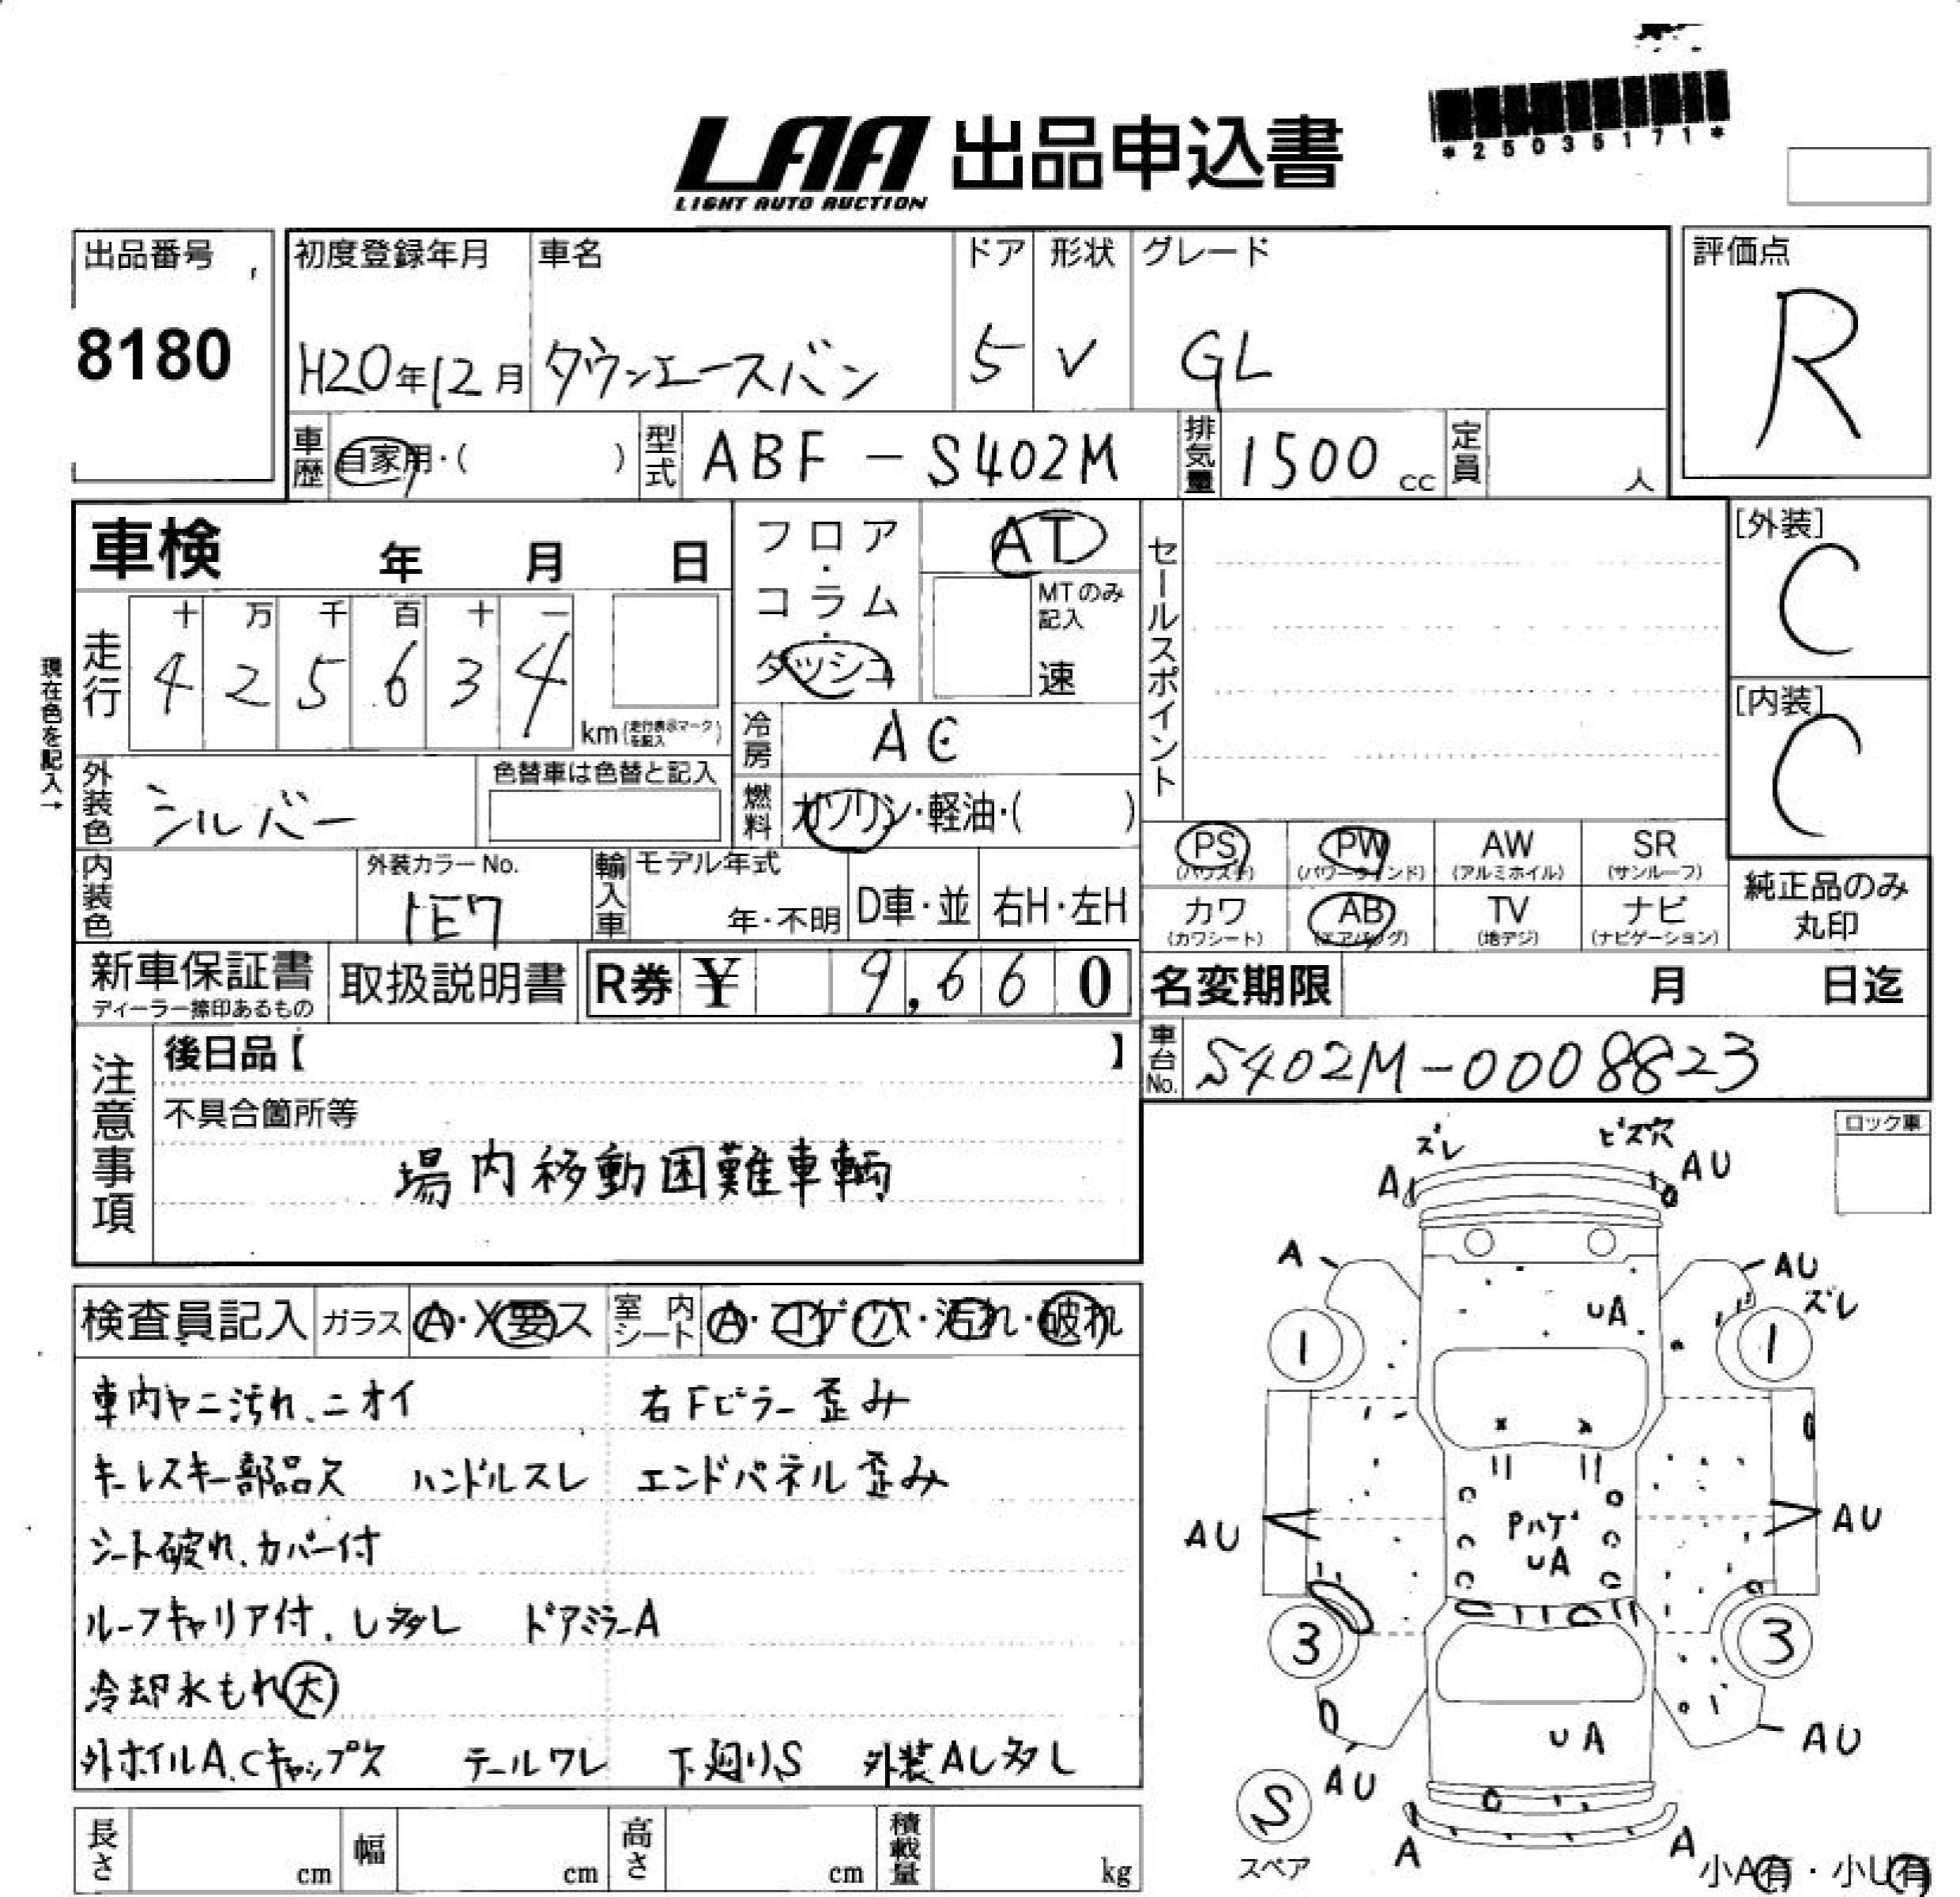 *25035171*
LAA 出品申込書
LIGHT AUTO AUCTION
出品番号
8180
初度登録年月 車名 ドア 形状 グレード
H20年12月 タウンエースバン 5 V GL
評価点
R
車歴 自家用・( ) 型式 ABF-S402M 排気量 1500cc 定員 人
車検 年 月 日
フロア・コラム・ダッシュ
AT
MTのみ記入
速
セールスポイント
[外装]
C
[内装]
C
現在色を記入→
走行 十 万 千 百 十 一
4 2 5 6 3 4 km(走行表示マークを記入)
冷房 AC
外装色 シルバー 色替車は色替と記入
燃料 ガソリン・軽油・( )
内装色 外装カラーNo. 1E7
輸入車 モデル年式 年・不明 D車・並 右H・左H
PS (パワステ) PW (パワーウインド) AW (アルミホイル) SR (サンルーフ)
カワ (カワシート) AB (エアバッグ) TV (地デジ) ナビ (ナビゲーション)
純正品のみ丸印
新車保証書 ディーラー捺印あるもの 取扱説明書 R券 ¥ 9,660
名変期限 月 日迄
車台No. S402M-0008823
注意事項
後日品【 】
不具合箇所等
場内移動困難車輌
検査員記入 ガラス A・X要ス 室内シート A・コゲ・穴・汚れ・破れ
車内ヤニ汚れ、ニオイ 右Fピラー歪み
キーレスキー部品欠 ハンドルスレ エンドパネル歪み
シート破れ、カバー付
ルーフキャリア付、し多し ドアミラーA
冷却水もれ大
外ホイルA、Cキャップ欠 テールワレ 下廻りS 外装AU多し
長さ cm 幅 cm 高さ cm 積載量 kg
ロック車
ズレ ビス穴
A AU
A AU
ズレ
UA
1 1
AU Pハゲ AU
UA
3 3
UA
AU AU
S
スペア
A A
小A有・小U有